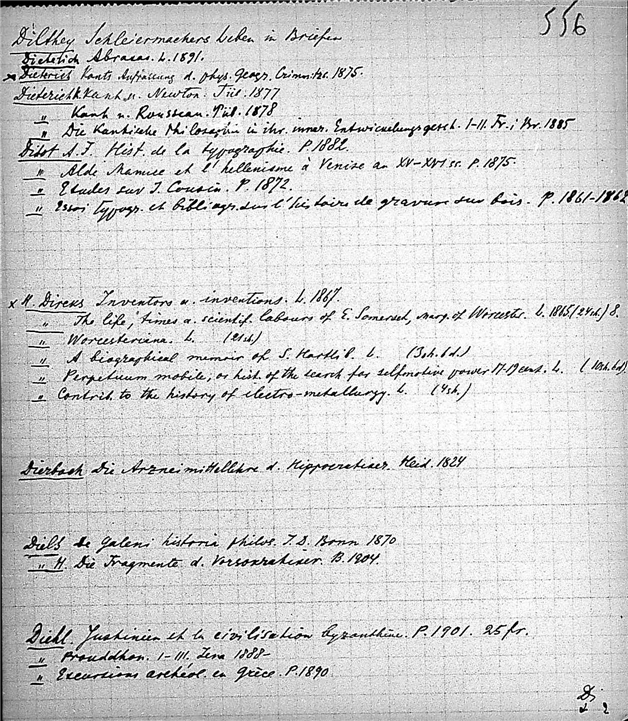 556
Dilthey Schleiermachers Leben in Briefen
Dieterich Abraxas. L. 1891.
× Dieterici Kants Auffassung d. phys. Geogr. 1875.
Dieterich K. Kant u. Newton. Tüb. 1877
" Kant u. Rousseau. Tüb. 1878
" Die Kantische Philosophie in ihr. inner. Entwickelungsgesch. I-II. Fr. i Br. 1885
Didot A. F. Hist. de la typographie. P. 1882.
" Alde Manuce et l'hellenisme à Venise au XV-XVI ss. P. 1875.
" Etudes sur J. Cousin. P. 1872.
" Essai typogr. et bibliogr. sur l'histoire de gravure sur bois. P. 1861-1862
× H. Dircks Inventors a. inventions. L. 1867.
" The life, times a. scientif. labours of E. Somerset, Marq. of Worcester. L. 1865 (24sh) 8.
" Worcesteriana. L. (21sh)
" A biographical memoir of S. Hartlib. L. (3sh. 6d.)
" Perpetuum mobile, or hist. of the search for selfmotive power 17-19 cent. L. (10sh. 6d.)
" Contrib. to the history of electro-metallurgy. L. (4sh.)
Dierbach Die Arzneimittellehre d. Hippocrates. Heid. 1824
Diels De Galeni historia philos. I. D. Bonn 1870
" H. Die Fragmente d. Vorsokratiker. B. 1904.
Diehl. Justinien et la civilisation byzantine. P. 1901. 25 fr.
" Proudhon. I-III. Jena 1888-
" Excursions archéol. en Grèce. P. 1890
Di
2